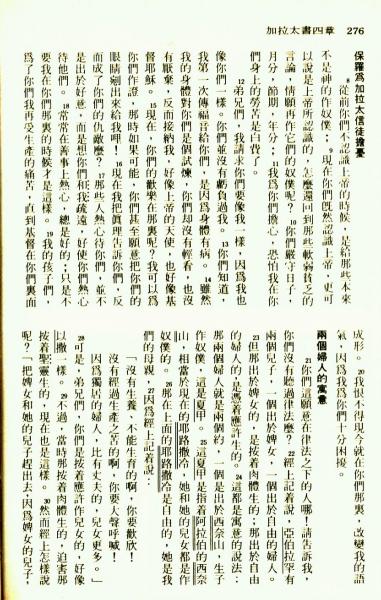 加拉太書四章 276
保羅爲加拉太信徒擔憂
8從前你們不認識上帝的時候，是給那些本來
不是神的作奴僕；9現在你們既然認識上帝，更可
以說是上帝所認識的，怎麽還回到那些軟弱貧乏的
言論，情願再作它們的奴僕呢？10你們嚴守日子，
月分，節期，年分；11我爲你們擔心，恐怕我在你
們身上的勞苦是白費了。
12弟兄們，我請求你們要像我一樣，因爲我也
像你們一樣。你們並沒有虧負過我。13你們知道，
我第一次傳福音給你們，是因爲身體有病。14雖然
我的身體對你們是個試煉，你們却沒有輕看，也沒
有厭棄，反而接納我，好像上帝的天使，也好像基
督耶穌。15現在，你們的歡樂在那裏呢？我可以爲
你們作證，那時如果可能，你們甚至願意把你們的
眼睛剜出來給我哩！16現在我把眞理告訴你們，反
而成了你們的仇敵麽？17那些人熱心待你們，並不
是出於好意，而是想你們和我疏遠，好使你們熱心
待他們。18常常在善事上熱心，總是好的；只是不
要我在你們那裏的時候才是這樣。19我的孩子們，
爲了你們我再受生產的痛苦，直到基督在你們裏面
成形。20我恨不得現今就在你們那裏，改變我的語
氣，因爲我爲你們十分困擾。
兩個婦人的寓意
21你們這願意在律法之下的人哪！請告訴我，
你們沒有聽過律法麽？22經上記着說，亞伯拉罕有
兩個兒子，一個出於婢女，一個出於自由的婦人。
23但那出於婢女的，是按着肉體生的；那出於自由
的婦人的，是憑着應許生的。24這都是寓意的說法：
那兩個婦人就是兩個約，一個是出於西奈山，生子
作奴僕，這是夏甲。25這夏甲是指着阿拉伯的西奈
山，相當於現在的耶路撒冷，她和她的兒女都是作
奴僕的。26那在上面的耶路撒冷是自由的，她是我
們的母親，27因爲經上記着說：
「沒有生養、不能生育的啊，你要歡欣！
沒有經過生產之苦的啊，你要大聲呼喊！
因爲獨居的婦人，比有丈夫的，兒女更多。」
28可是，弟兄們，你們是按着應許作兒女的，好像
以撒一樣。29不過，當時那按着肉體生的，迫害那
按着聖靈生的，現在也是這樣。30然而經上怎樣說
呢？「把婢女和她的兒子趕出去，因爲婢女的兒子，